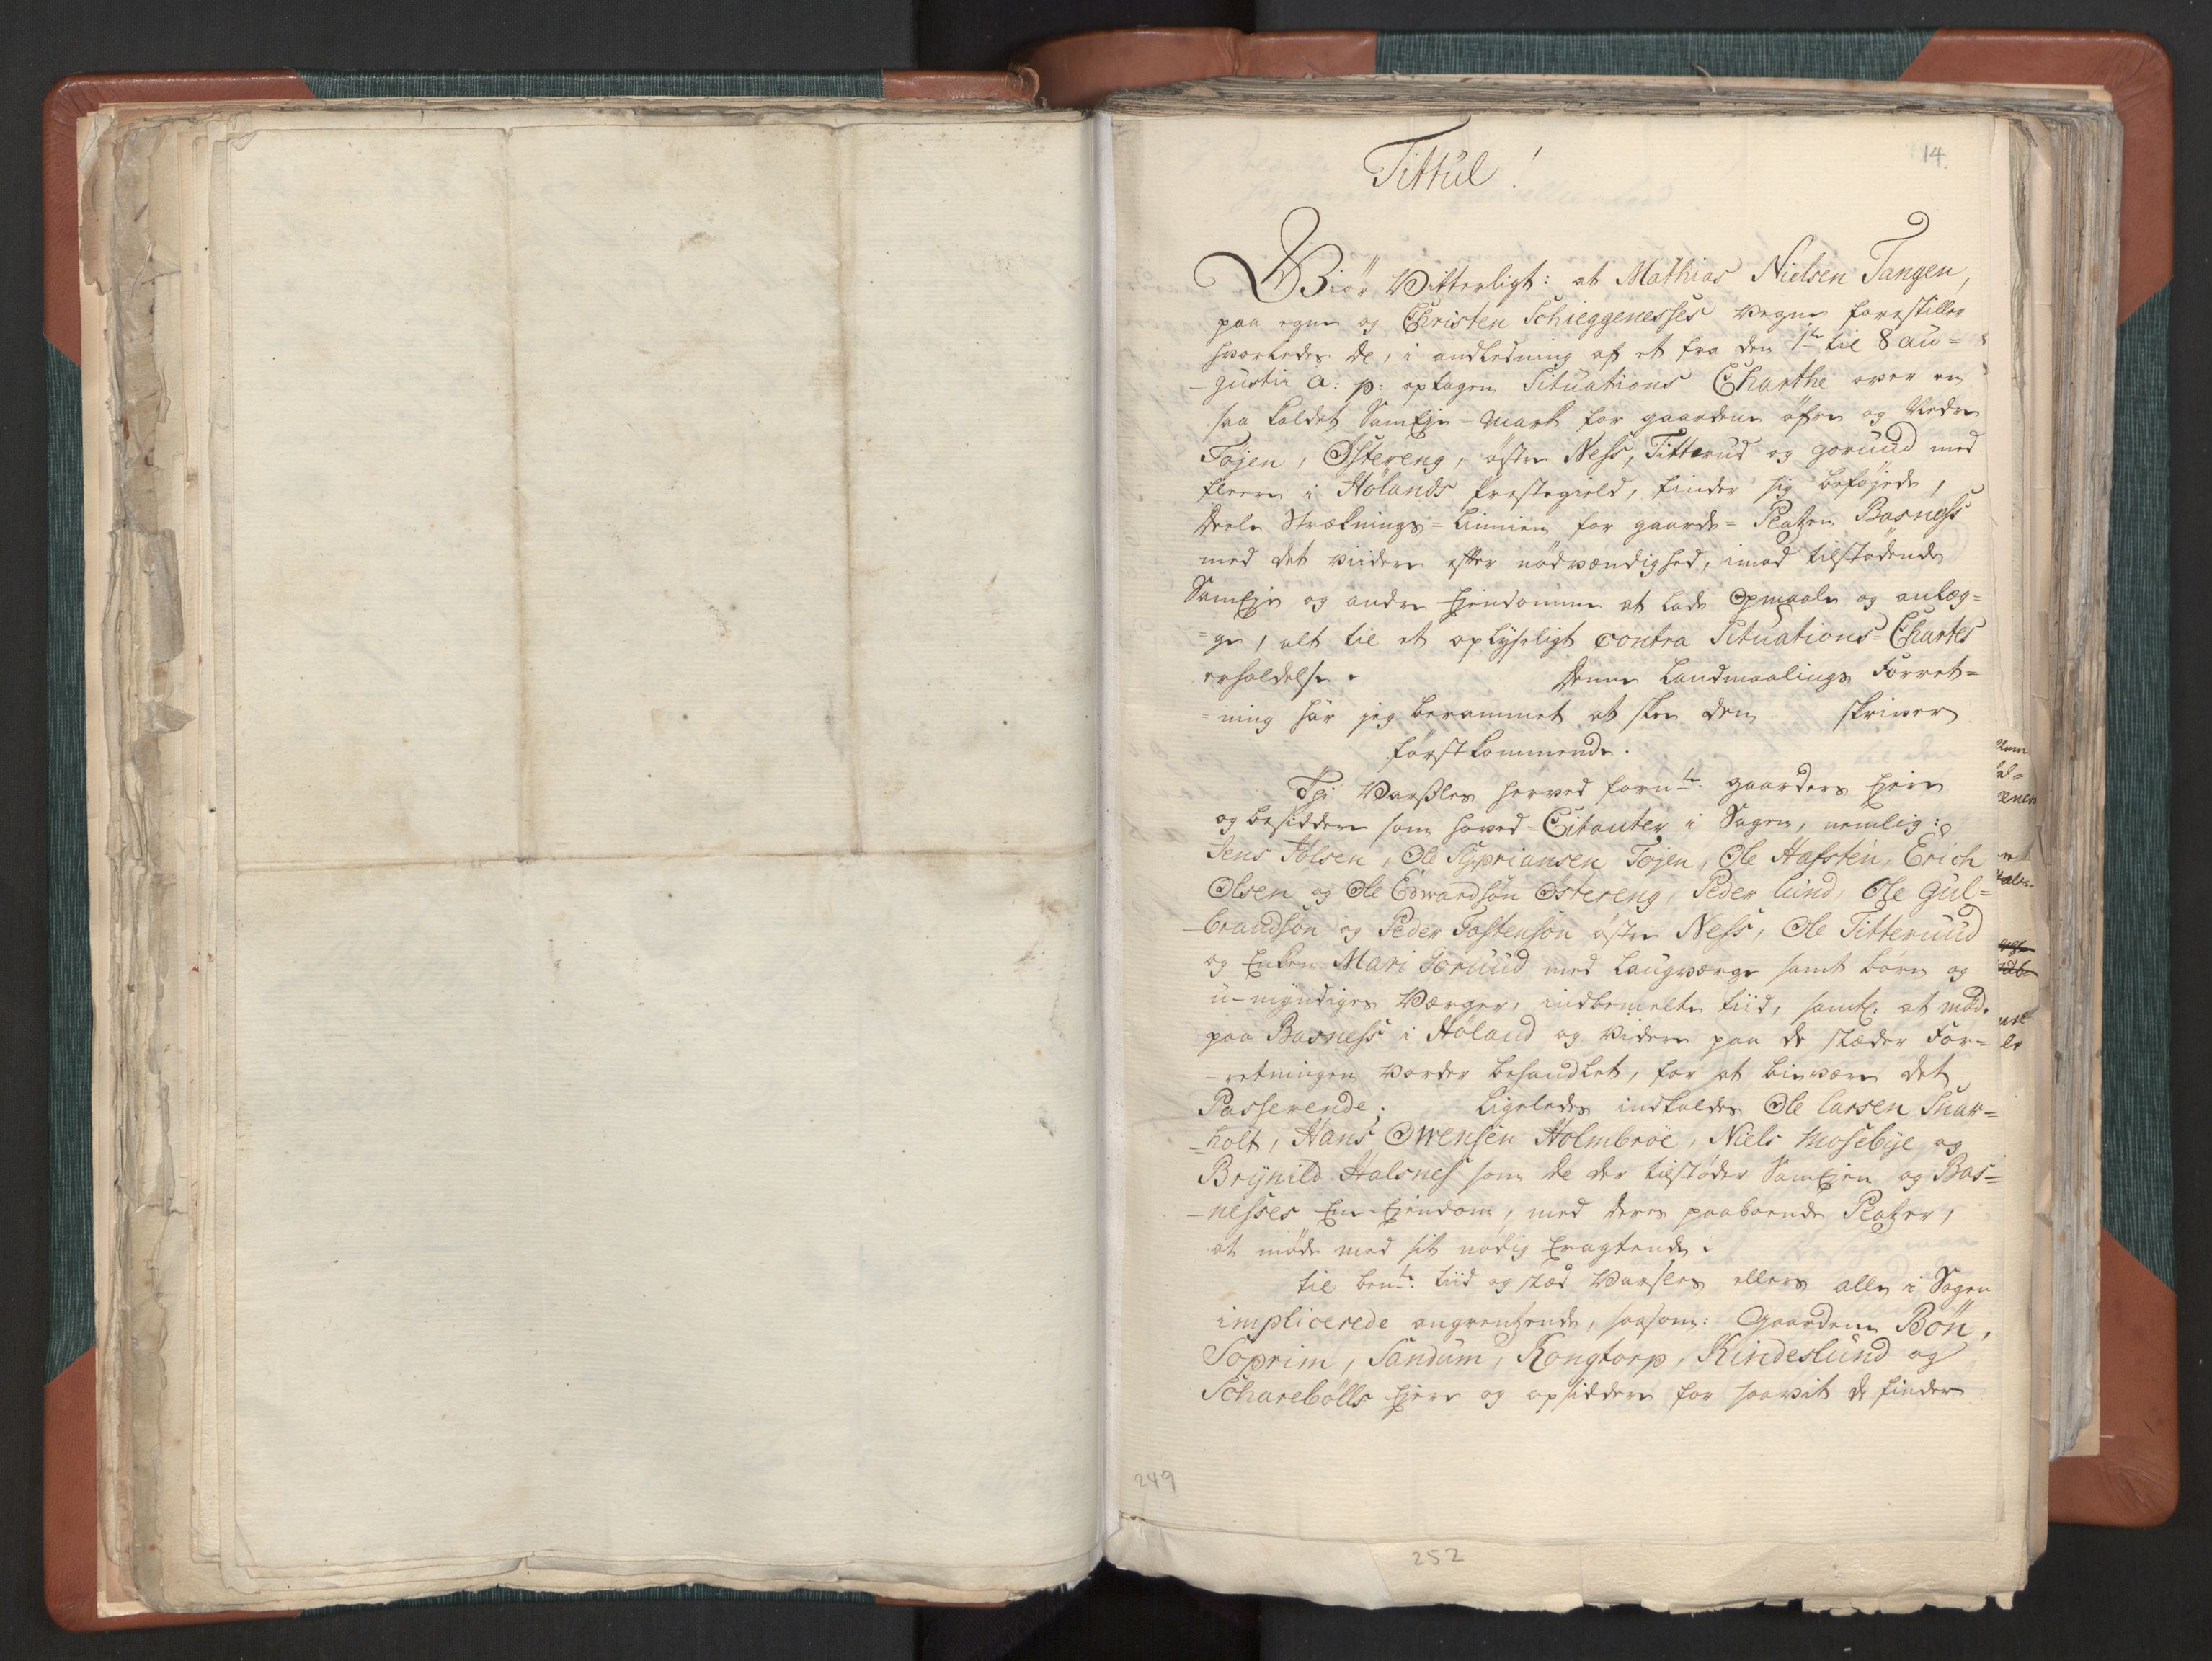 14.
Tittul!
Giör Vitterligt: at Mathias Nielsen Tangen,
paa egne og Christen Schieggenesses Vegne forestiller
hvorledes de, i andledning af et fra den 1te til 8 au=
-gustii a: p: optagen Situations Charthe over en
saa kaldet SamEje-Mark for gaardene øfre og Nedre
Töjen, Østereng, østre Ness, Titterud og goruud med
fleere i Hölands Præstegield, finder sig beföjede,
deele Stræknings=Linnien for gaards=Platzen Basness
med det viidere efter nödvændighed, imod tilstødende
SamEje og andre Ejendomme at lade Opmaale og anlæg=
=ge, alt til et oplyseligt contra Situations=Chartes
erholdelse. Denne Landmaalings Forret=
=ning har jeg berammet at skee den skriver
förstkommende.
Thi Varsles herved forn.te gaarders Ejere
og besiddere som hoved=Citanter i Sagen, nemlig:
Jens Jolsen, Ole Sypriansen Töjen, Ole Hafsten, Erich
Olsen og Ole Edwardsön Østereng, Peder Lund, Ole Gul=
-brandsön og Peder Tostensön østre Ness, Ole Titteruud
og Enken Mari Goruud med Laugværge samt börn og
u-myndiges Værger, indbemelte tiid, samtl: at möde
paa Basness i Höland og videre paa de stæder For=
-retningen vorder behandlet, for at bievære det
Passerende; Ligeledes indkaldes Ole Larsen Snar=
-holt, Hans Owensen Holmbroe, Niels Mosebye og
Brynild Halsnes som de der tilstøder SamEjen og Bas=
-nesses Ene-Ejendom, med deres paaboende Platzer,
at möde med sit nödig Eragtende.
til bem.te tiid og stæd Varsles ellers alle i Sagen
implicerede angrentzende, saasom: Gaardene Bön,
Soprim, Sandum, Kongtorp, Kindeslund og
Scharebölls Ejere og opsiddere for saavit de finder
249
252